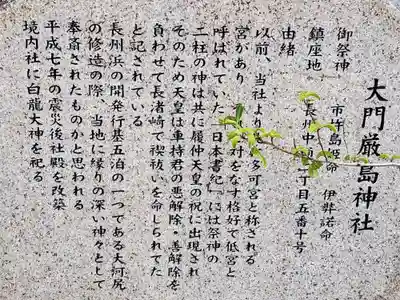 大門厳島神社
御祭神 市杵島 命 伊弉諾命
鎮座地 長 中 丁目五番十号
由緒
以前、当社より 多可宮と称される
宮があり 対をなす格好で低宮と
呼ばれていた 日本書紀 には祭神の
二柱の神は共に履仲天皇の祝に出現され
そのため天皇は車持君の悪解除・善解除を
負わせて長渚崎で禊祓いを命しられてた
と記されている
長州浜の開発行基五泊の一つである大河尻
の修造の際、当地に縁りの深い神々として
奉斎されたものかと思われる
平成七年の震災後社殿を改築
境内社に白龍大神を祀る